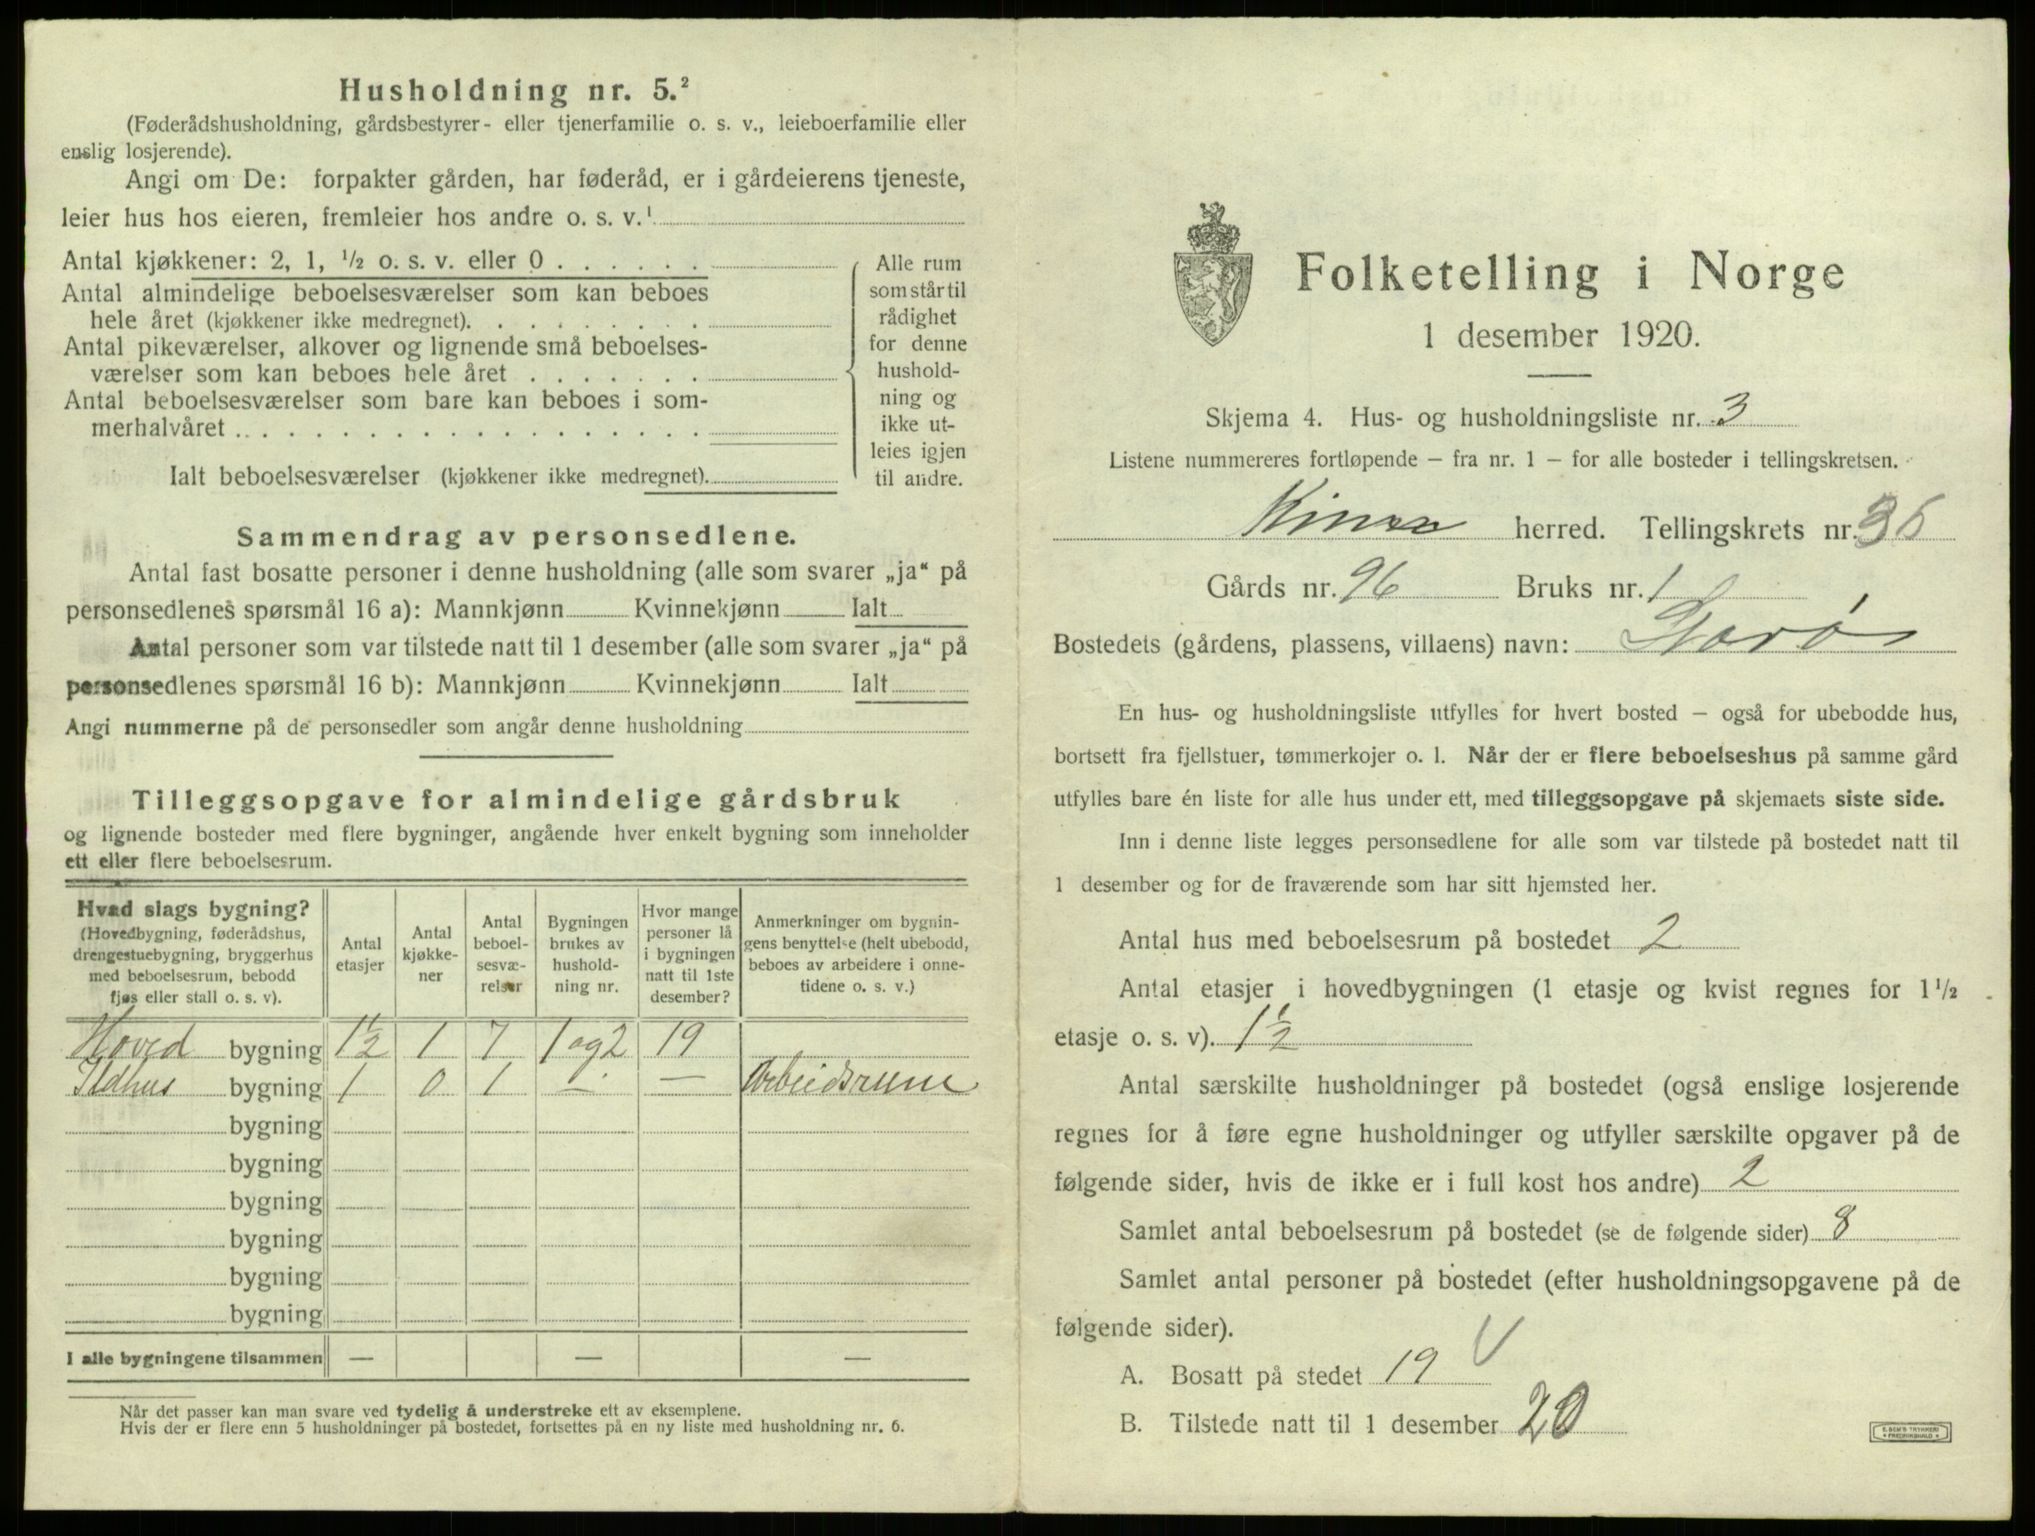 Husholdning nr. 5.²
(Føderådshusholdning, gårdsbestyrer- eller tjenerfamilie o. s. v., leieboerfamilie eller
enslig losjerende).
Angi om De: forpakter gården, har føderåd, er i gårdeierens tjeneste,
leier hus hos eieren, fremleier hos andre o. s. v.¹
Antal kjøkkener: 2, 1, ½ o. s. v. eller 0 . . . . . .
Antal almindelige beboelsesværelser som kan beboes
hele året (kjøkkener ikke medregnet). . . . . . . . .
Antal pikeværelser, alkover og lignende små beboelses-
værelser som kan beboes hele året . . . . . . .
Antal beboelsesværelser som bare kan beboes i som-
merhalvåret . . . . . . . . . . . . . . . . . .
Ialt beboelsesværelser (kjøkkener ikke medregnet).
Alle rum
som står til
rådighet
for denne
hushold-
ning og
ikke ut-
leies igjen
til andre.
Sammendrag av personsedlene.
Antal fast bosatte personer i denne husholdning (alle som svarer „ja“ på
personsedlenes spørsmål 16 a): Mannkjønn Kvinnekjønn Ialt
Antal personer som var tilstede natt til 1 desember (alle som svarer „ja“ på
personsedlenes spørsmål 16 b): Mannkjønn Kvinnekjønn Ialt
Angi nummerne på de personsedler som angår denne husholdning
Tilleggsopgave for almindelige gårdsbruk
og lignende bosteder med flere bygninger, angående hver enkelt bygning som inneholder
ett eller flere beboelsesrum.
Hvad slags bygning?
(Hovedbygning, føderådshus,
drengestuebygning, bryggerhus
med beboelsesrum, bebodd
fjøs eller stall o. s. v).
Antal
etasjer
Antal
kjøkke-
ner
Antal
beboel-
sesvæ-
relser
Bygningen
brukes av
hushold-
ning nr.
Hvor mange
personer lå
i bygningen
natt til 1ste
desember?
Anmerkninger om bygnin-
gens benyttelse (helt ubebodd,
beboes av arbeidere i onne-
tidene o. s. v.)
Hoved bygning 1½ 1 7 1 og 2 19
Ildhus bygning 1 0 1 — — Arbeidsrum
bygning
bygning
bygning
bygning
bygning
bygning
I alle bygningene tilsammen — — —
Når det passer kan man svare ved tydelig å understreke ett av eksemplene.
Hvis der er flere enn 5 husholdninger på bostedet, fortsettes på en ny liste med husholdning nr. 6.
Folketelling i Norge
1 desember 1920.
Skjema 4. Hus- og husholdningsliste nr. 3
Listene nummereres fortløpende – fra nr. 1 – for alle bosteder i tellingskretsen.
Kinn herred. Tellingskrets nr. 36
Gårds nr. 96 Bruks nr. 1
Bostedets (gårdens, plassens, villaens) navn:
En hus- og husholdningsliste utfylles for hvert bosted – også for ubebodde hus,
bortsett fra fjellstuer, tømmerkojer o. l. Når der er flere beboelseshus på samme gård
utfylles bare én liste for alle hus under ett, med tilleggsopgave på skjemaets siste side.
Inn i denne liste legges personsedlene for alle som var tilstede på bostedet natt til
1 desember og for de fraværende som har sitt hjemsted her.
Antal hus med beboelsesrum på bostedet 2
Antal etasjer i hovedbygningen (1 etasje og kvist regnes for 1½
etasje o. s. v). 1½
Antal særskilte husholdninger på bostedet (også enslige losjerende
regnes for å føre egne husholdninger og utfyller særskilte opgaver på de
følgende sider, hvis de ikke er i full kost hos andre) 2
Samlet antal beboelsesrum på bostedet (se de følgende sider) 8
Samlet antal personer på bostedet (efter husholdningsopgavene på de
følgende sider).
A. Bosatt på stedet 19
B. Tilstede natt til 1 desember 20